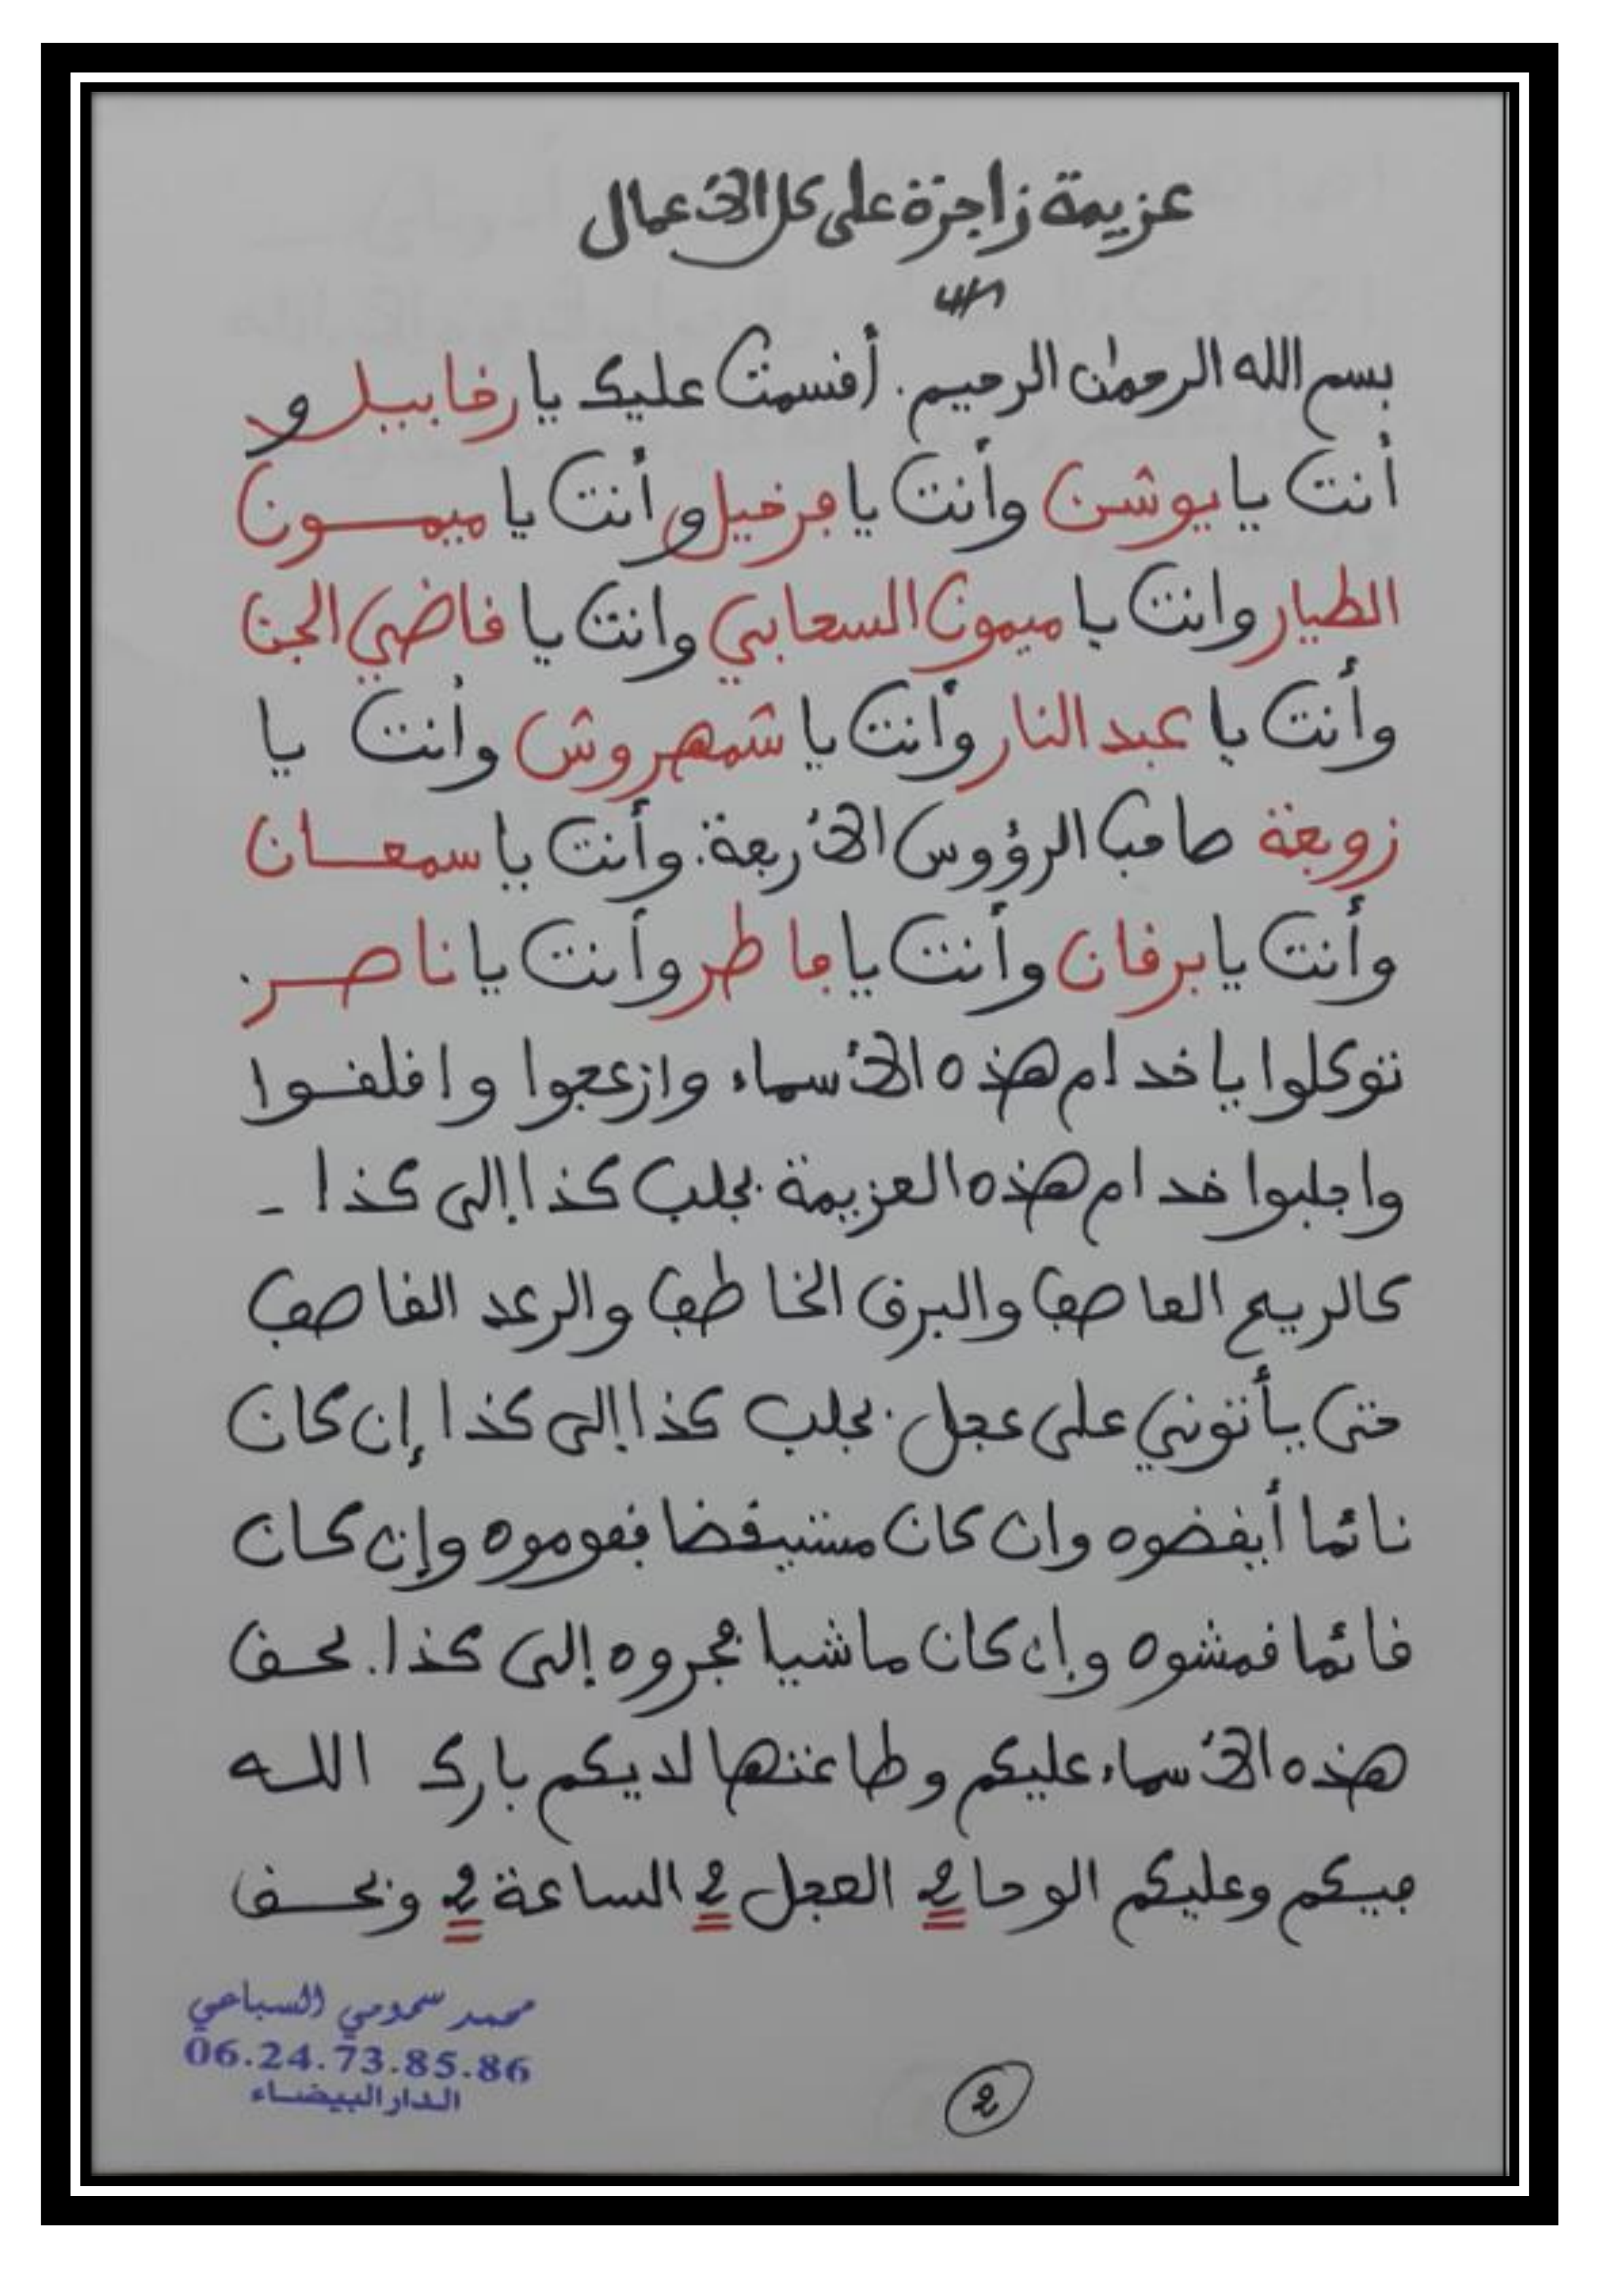 عزيمة زاجرة على كل الأعمال
بسم الله الرحمن الرحيم. أقسمت عليك يا رقابيل و
أنت يا يوشن وأنت يا فرخيل وأنت يا ميمـــون
الطيار وانت يا ميمون السعابي وانت يا قاضي الجن
وأنت يا عبد النار وأنت يا شمهروش وأنت يا
زوبعة صاحب الرؤوس الأربعة. وأنت يا سمعـــان
وأنت يا برقان وأنت يا ماطر وأنت يا ناصـــر.
توكلوا يا خدام هذه الأسماء وازعجوا واقلقـوا
واجلبوا خدام هذه العزيمة بجلب كذا إلى كذا -
كالريح العاصف والبرق الخاطف والرعد القاصف
حتى يأتوني على عجل. بجلب كذا إلى كذا إن كان
نائما أيقضوه وان كان مستيقضا فقوموه وإن كـان
قائما فمشوه وإن كان ماشيا فجروه إلى كذا. بحـق
هذه الأسماء عليكم وطاعتها لديكم بارك اللـه
فيـكم وعليكم الوحا 2 العجل 2 الساعة 2 وبحـــق
محمد سمومي السباعي
06.24.73.85.86
الدار البيضاء
2